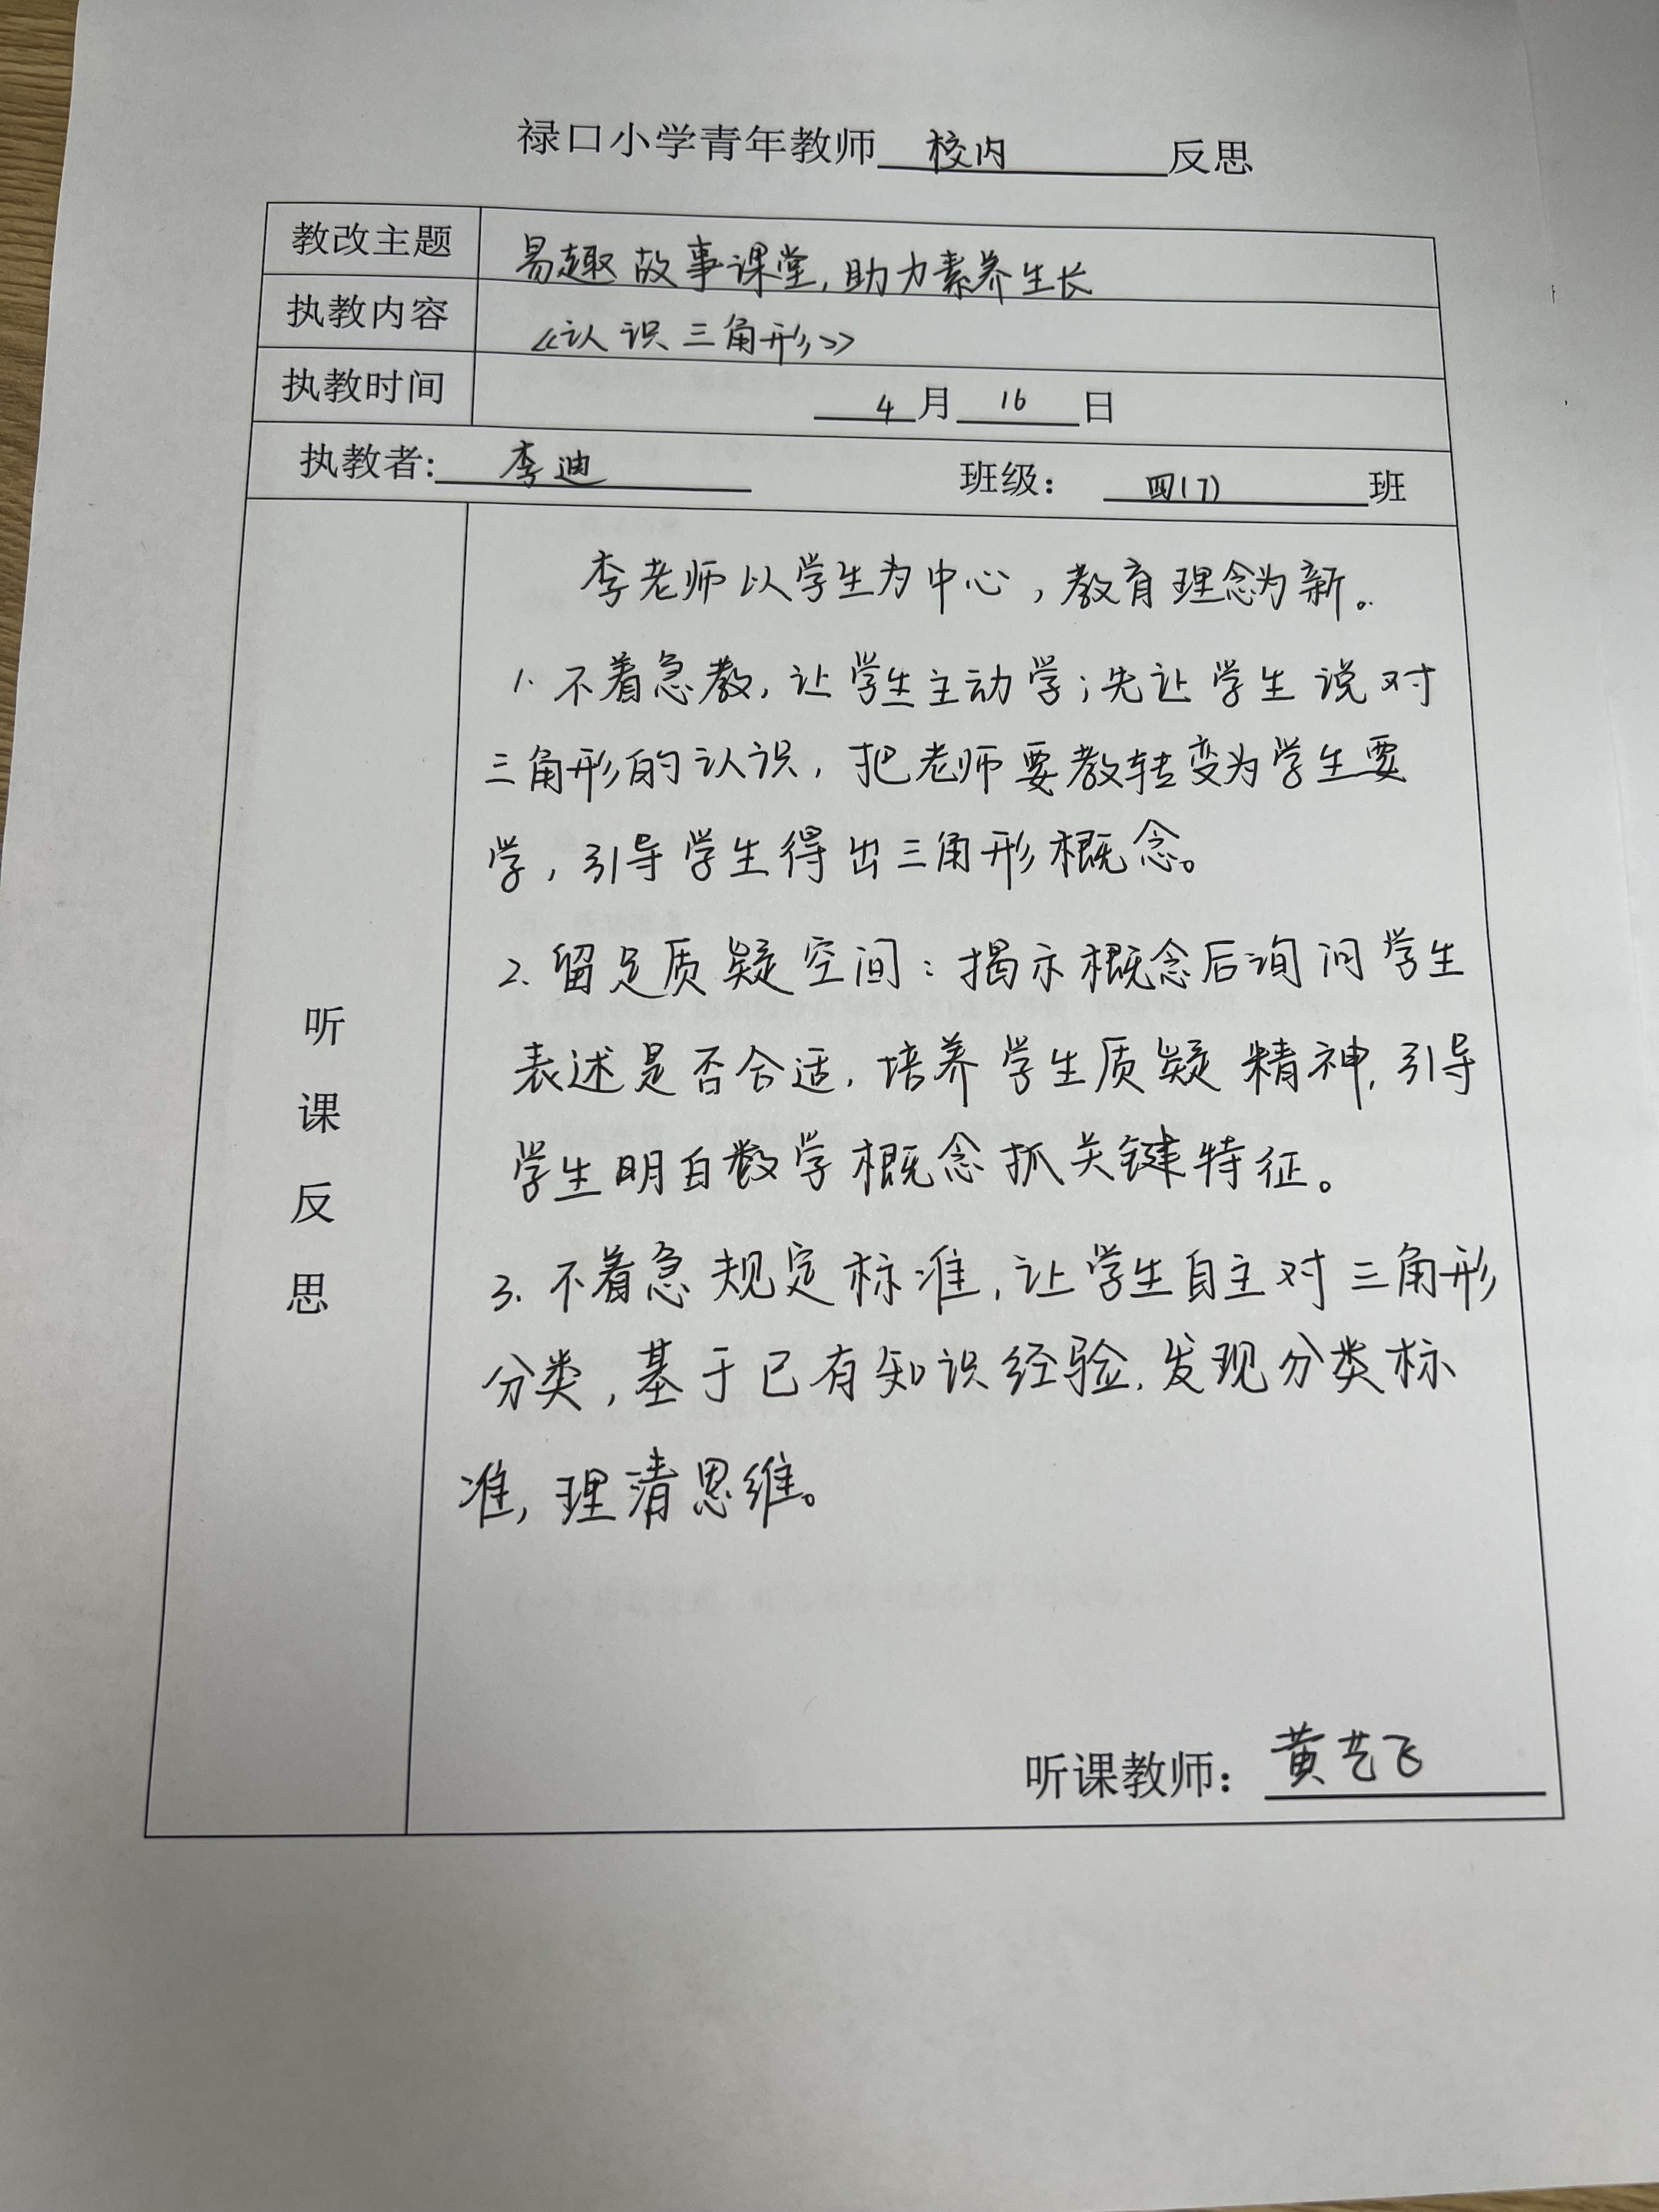 禄口小学青年教师 校内 反思
教改主题 易趣故事课堂，助力素养生长
执教内容 《认识三角形》
执教时间 4月16日
执教者: 李迪 班级： 四(7) 班
李老师以学生为中心，教育理念为新。
1. 不着急教，让学生主动学；先让学生说对
三角形的认识，把老师要教转变为学生要
学，引导学生得出三角形概念。
2. 留足质疑空间：揭示概念后询问学生
表述是否合适，培养学生质疑精神，引导
学生明白数学概念抓关键特征。
3. 不着急规定标准，让学生自主对三角形
分类，基于已有知识经验，发现分类标
准，理清思维。
听
课
反
思
听课教师： 黄艺飞